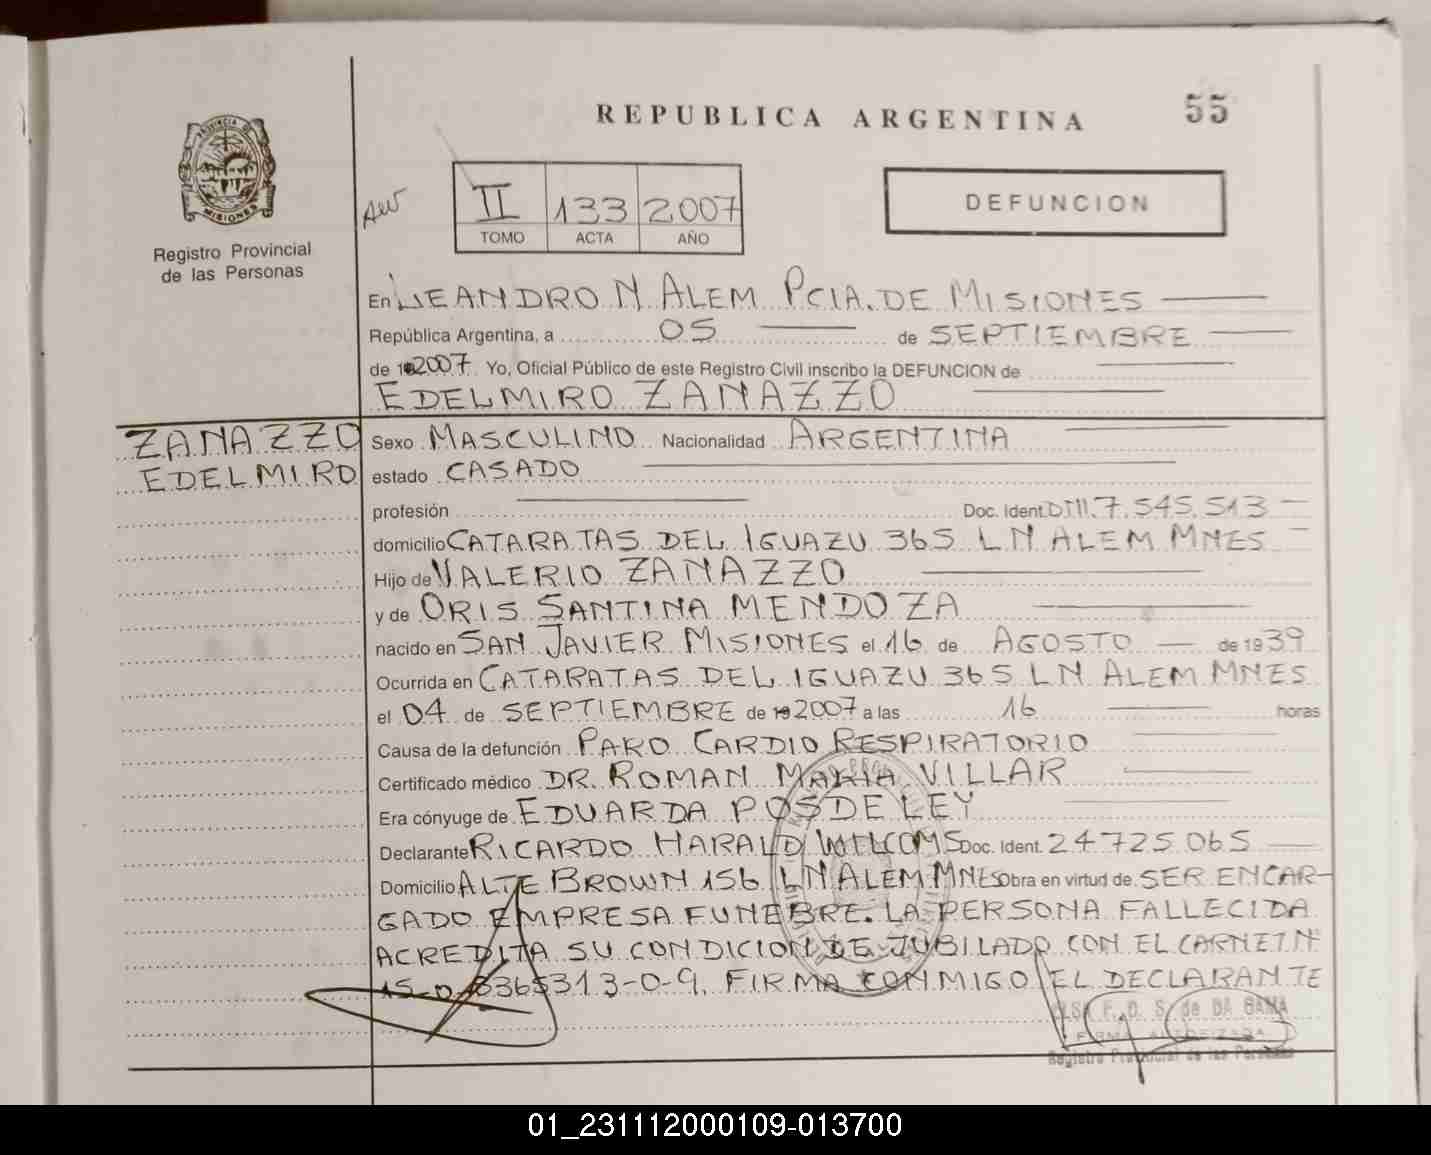 REPUBLICA ARGENTINA
55
PROVINCIA DE
MISIONES
Registro Provincial
de las Personas
II 133 2007
TOMO ACTA AÑO
DEFUNCION
En LEANDRO N ALEM PCIA. DE MISIONES
República Argentina, a 05 de SEPTIEMBRE
de 2007 Yo, Oficial Público de este Registro Civil inscribo la DEFUNCION de
EDELMIRO ZANAZZO
ZANAZZO
EDELMIRO
Sexo MASCULINO Nacionalidad ARGENTINA
estado CASADO
profesión Doc. Ident. DNI 7.545.513
domicilio CATARATAS DEL IGUAZU 365 LN ALEM MNES
Hijo de VALERIO ZANAZZO
y de ORIS SANTINA MENDOZA
nacido en SAN JAVIER MISIONES el 16 de AGOSTO de 1939
Ocurrida en CATARATAS DEL IGUAZU 365 LN ALEM MNES
el 04 de SEPTIEMBRE de 2007 a las 16 horas
Causa de la defunción PARO CARDIO RESPIRATORIO
Certificado médico DR. ROMAN MARIA VILLAR
Era cónyuge de EDUARDA POSDELEY
Declarante RICARDO HARALD Doc. Ident. 24725065
Domicilio ALTE BROWN 156 LN ALEM MNES Obra en virtud de SER ENCAR-
GADO EMPRESA FUNEBRE. LA PERSONA FALLECIDA
ACREDITA SU CONDICION DE JUBILADO CON EL CARNET Nº
FIRMA CONMIGO EL DECLARANTE
S. de DA GAMA
FIRMA AUTORIZADA
Registro Provincial de las Personas
01_231112000109-013700